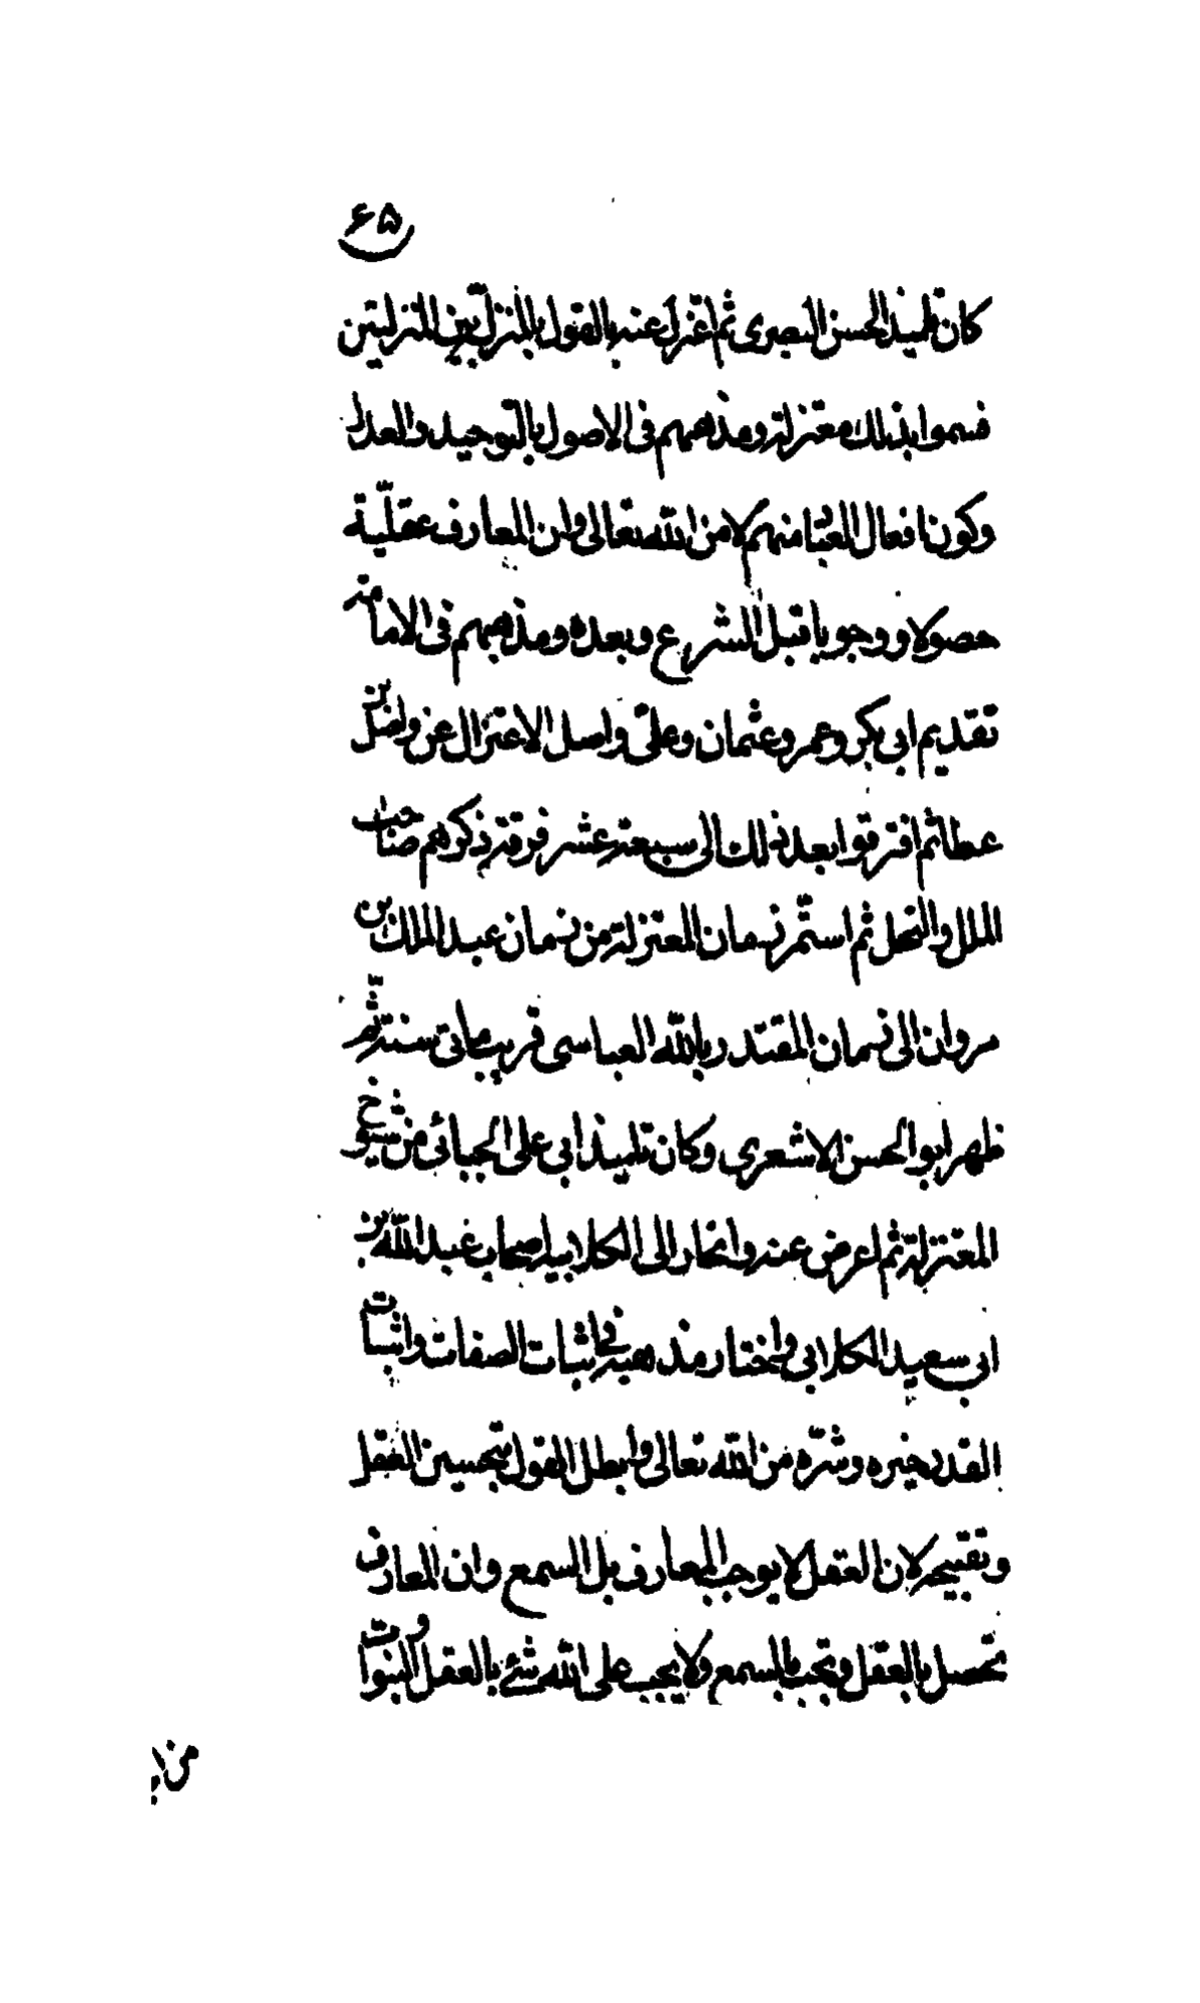 ۶۵
كان تلميذ الحسن البصرى ثم اعتزل عنه بالقول بالمنزلة بين المنزلتين
فسموا بذلك معتزلة ومذهبهم فى الاصول بالتوحيد والعدل
وكون افعال العباد منهم لا من الله تعالى وان المعارف عقليّة
حصولا ووجوبا قبل الشرع وبعده ومذهبهم فى الامامة
تقديم ابى بكر وعمر وعثمان وعلى واصل الاعتزال عن واصل بن
عطا ثم افترقوا بعد ذلك الى سبعة عشر فرقة ذكرهم صاحب
الملل والنحل ثم استمّر زمان المعتزلة من زمان عبد الملك بن
مروان الى زمان المقتدر بالله العباسى قريب مأتى سنة ثمّ
ظهر ابو الحسن الاشعرى وكان تلميذ ابى على الجبائى من شيوخ
المعتزلة ثم اعرض عنه وانحاز الى الكلابية اصحاب عبد الله بن
ابى سعيد الكلابى واختار مذهبه فى اثبات الصفات واثبات
القدر خيره وشرّه من الله تعالى وابطل القول بتحسين العقل
وتقبيحه لان العقل لا يوجب المعارف بل السمع وان المعارف
تحصل بالعقل وتجب بالسمع ولا يجب على الله شئ بالعقل والنبوات
من